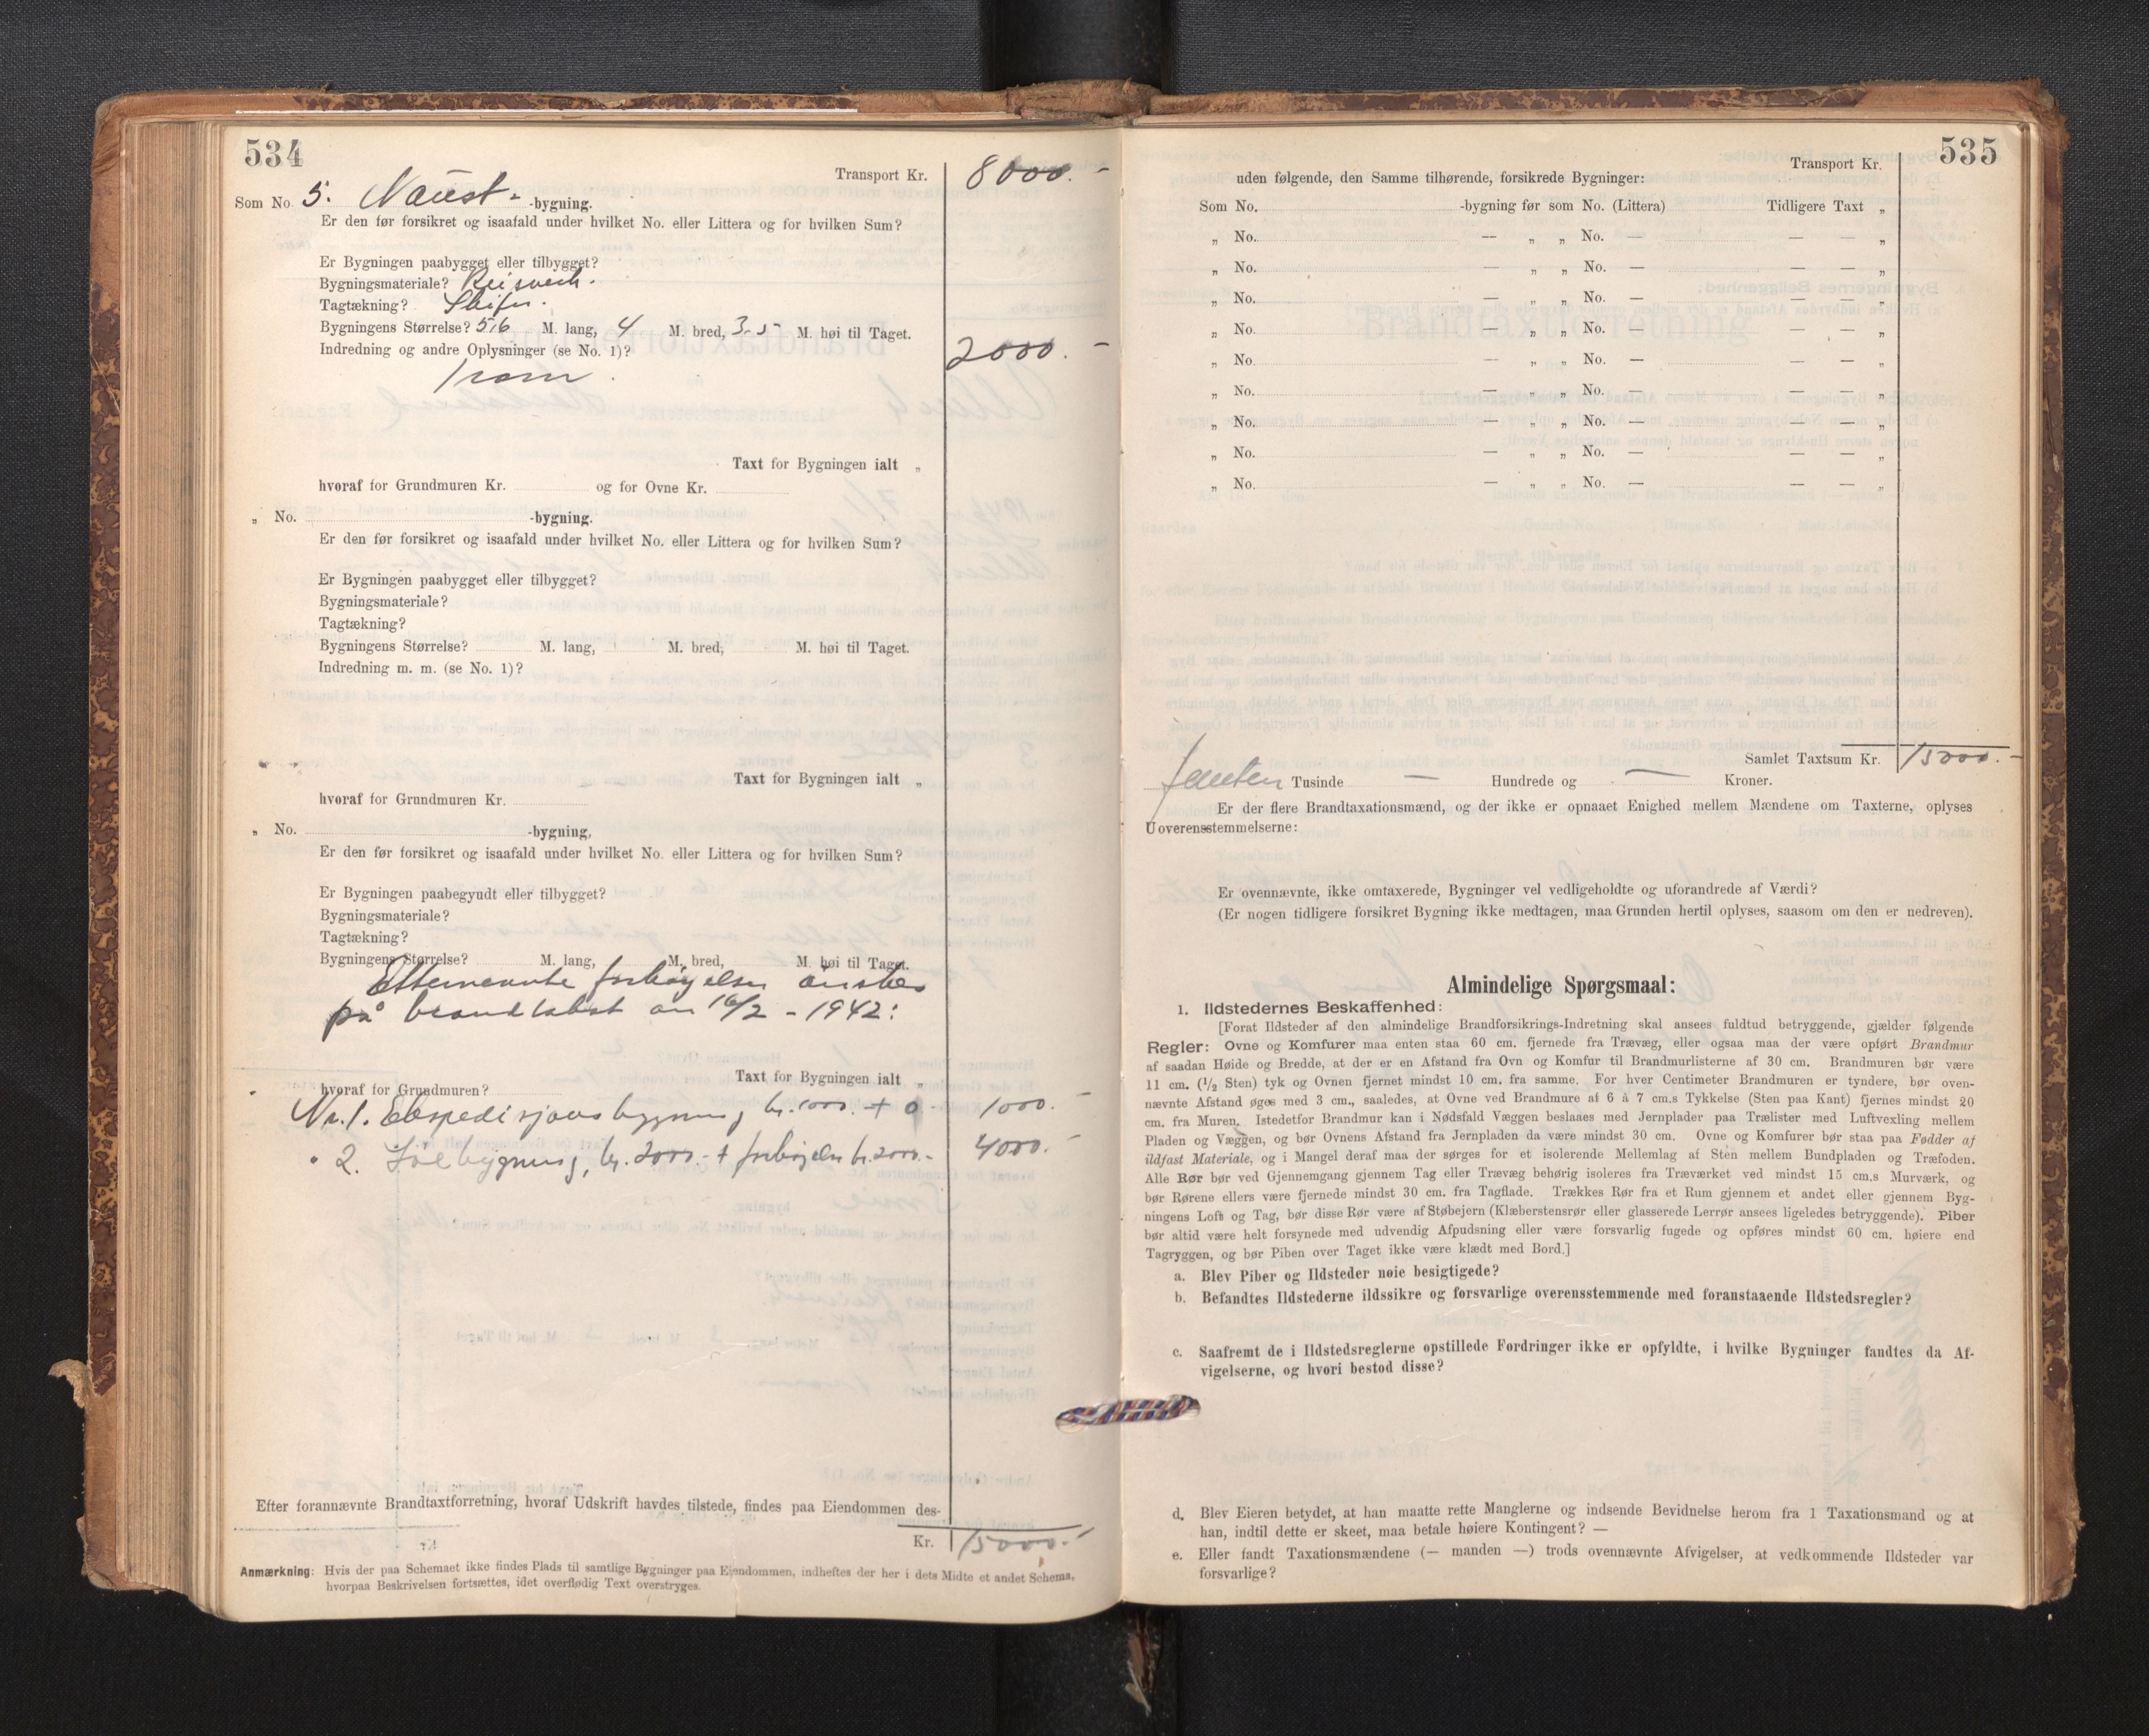 534
Transport Kr. 8000.-
Som No. 5. Naust- -bygning.
Er den før forsikret og isaafald under hvilket No. eller Littera og for hvilken Sum?
Er Bygningen paabygget eller tilbygget?
Bygningsmateriale? Reisverk.
Tagtækning? Skifer.
Bygningens Størrelse? 5,6 M. lang, 4 M. bred, 3.5 M. høi til Taget.
Indredning og andre Oplysninger (se No. 1)? 2000.-
1 rom.
Taxt for Bygningen ialt „
hvoraf for Grundmuren Kr. og for Ovne Kr.
„ No. -bygning.
Er den før forsikret og isaafald under hvilket No. eller Littera og for hvilken Sum?
Er Bygningen paabygget eller tilbygget?
Bygningsmateriale?
Tagtækning?
Bygningens Størrelse? M. lang, M. bred, M. høi til Taget.
Indredning m. m. (se No. 1)?
Taxt for Bygningen ialt „
hvoraf for Grundmuren Kr.
„ No. -bygning,
Er den før forsikret og isaafald under hvilket No. eller Littera og for hvilken Sum?
Er Bygningen paabegyndt eller tilbygget?
Bygningsmateriale?
Tagtækning?
Bygningens Størrelse? M. lang, M. bred, M. høi til Taget.
Etternevnte forhøyelser ønskes
på brandtakst av 16/2 - 1942:
Taxt for Bygningen ialt „
hvoraf for Grundmuren?
Nr. 1. Ekspedisjonsbygning kr. 1000.- + 0 1000.-
" 2. bygning, kr. 2000.- + forhøyelse kr. 2000.- 4000.-
Efter forannævnte Brandtaxtforretning, hvoraf Udskrift havdes tilstede, findes paa Eiendommen des-
Kr. 15000.-
Anmærkning: Hvis der paa Schemaet ikke findes Plads til samtlige Bygninger paa Eiendommen, indheftes der her i dets Midte et andet Schema,
hvorpaa Beskrivelsen fortsættes, idet overflødig Text overstryges.
535
Transport Kr.
uden følgende, den Samme tilhørende, forsikrede Bygninger:
Som No. -bygning før som No. (Littera) Tidligere Taxt „
„ No. — „ „ No. — — — „
„ No. — „ „ No. — — — „
„ No. — „ „ No. — — — „
„ No. — „ „ No. — — — „
„ No. — „ „ No. — — — „
„ No. — „ „ No. — — — „
„ No. — „ „ No. — — — „
„ No. — „ „ No. — — — „
„ No. — „ „ No. — — — „
Samlet Taxtsum Kr. 15000.-
femten Tusinde — Hundrede og — Kroner.
Er der flere Brandtaxationsmænd, og der ikke er opnaaet Enighed mellem Mændene om Taxterne, oplyses
Uoverensstemmelserne:
Er ovennævnte, ikke omtaxerede, Bygninger vel vedligeholdte og uforandrede af Værdi?
(Er nogen tidligere forsikret Bygning ikke medtagen, maa Grunden hertil oplyses, saasom om den er nedreven).
Almindelige Spørgsmaal:
1. Ildstedernes Beskaffenhed:
[Forat Ildsteder af den almindelige Brandforsikrings-Indretning skal ansees fuldtud betryggende, gjælder følgende
Regler: Ovne og Komfurer maa enten staa 60 cm. fjernede fra Trævæg, eller ogsaa maa der være opført Brandmur
af saadan Høide og Bredde, at der er en Afstand fra Ovn og Komfur til Brandmurlisterne af 30 cm. Brandmuren bør være
11 cm. (1/2 Sten) tyk og Ovnen fjernet mindst 10 cm. fra samme. For hver Centimeter Brandmuren er tyndere, bør oven-
nævnte Afstand øges med 3 cm., saaledes, at Ovne ved Brandmure af 6 à 7 cm.s Tykkelse (Sten paa Kant) fjernes mindst 20
cm. fra Muren. Istedetfor Brandmur kan i Nødsfald Væggen beslaaes med Jernplader paa Trælister med Luftvexling mellem
Pladen og Væggen, og bør Ovnens Afstand fra Jernpladen da være mindst 30 cm. Ovne og Komfurer bør staa paa Fødder af
ildfast Materiale, og i Mangel deraf maa der sørges for et isolerende Mellemlag af Sten mellem Bundpladen og Træfoden.
Alle Rør bør ved Gjennemgang gjennem Tag eller Trævæg behørig isoleres fra Træværket ved mindst 15 cm.s Murværk, og
bør Rørene ellers være fjernede mindst 30 cm. fra Tagflade. Trækkes Rør fra et Rum gjennem et andet eller gjennem Byg-
ningens Loft og Tag, bør disse Rør være af Støbejern (Klæberstensrør eller glasserede Lerrør ansees ligeledes betryggende). Piber
bør altid være helt forsynede med udvendig Afpudsning eller være forsvarlig fugede og opføres mindst 60 cm. høiere end
Tagryggen, og bør Piben over Taget ikke være klædt med Bord.]
a. Blev Piber og Ildsteder nøie besigtigede?
b. Befandtes Ildstederne ildssikre og forsvarlige overensstemmende med foranstaaende Ildstedsregler?
c. Saafremt de i Ildstedsreglerne opstillede Fordringer ikke er opfyldte, i hvilke Bygninger fandtes da Af-
vigelserne, og hvori bestod disse?
d. Blev Eieren betydet, at han maatte rette Manglerne og indsende Bevidnelse herom fra 1 Taxationsmand og at
han, indtil dette er skeet, maa betale høiere Kontingent? —
e. Eller fandt Taxationsmændene (— manden —) trods ovennævnte Afvigelser, at vedkommende Ildsteder var
forsvarlige?